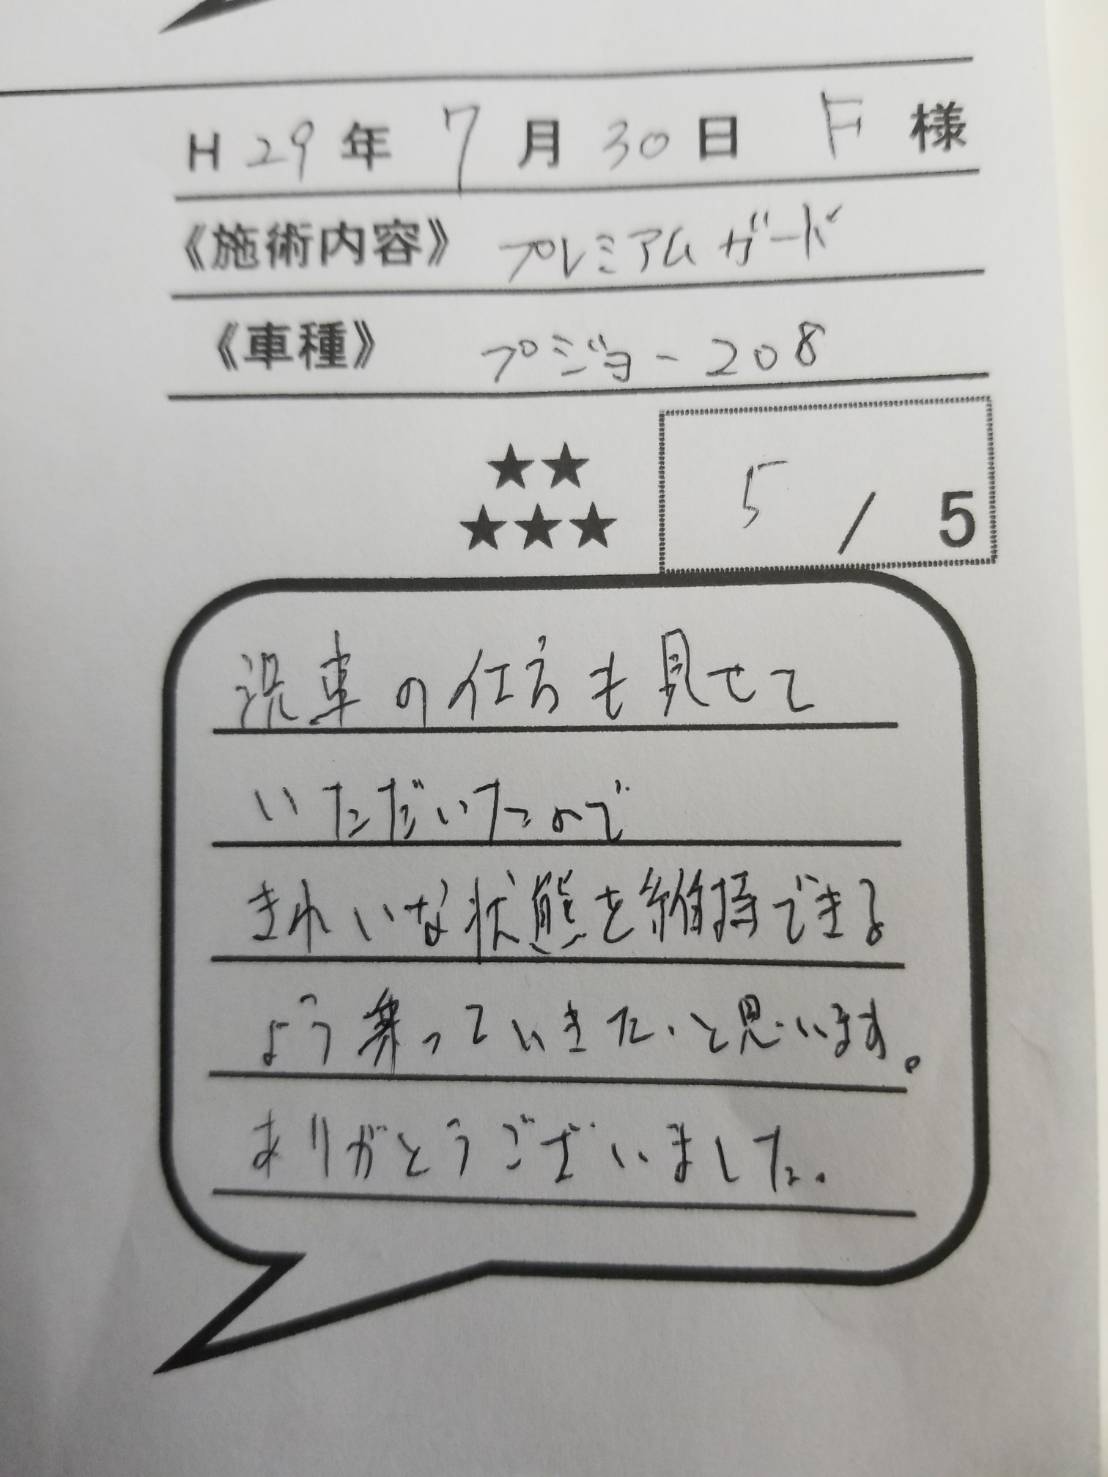 H29年 7月30日 F様
《施術内容》 プレミアムガード
《車種》 プジョー208
★★
★★★
5/5
洗車の仕方も見せて
いただいたので
きれいな状態を維持できる
よう乗っていきたいと思います。
ありがとうございました。